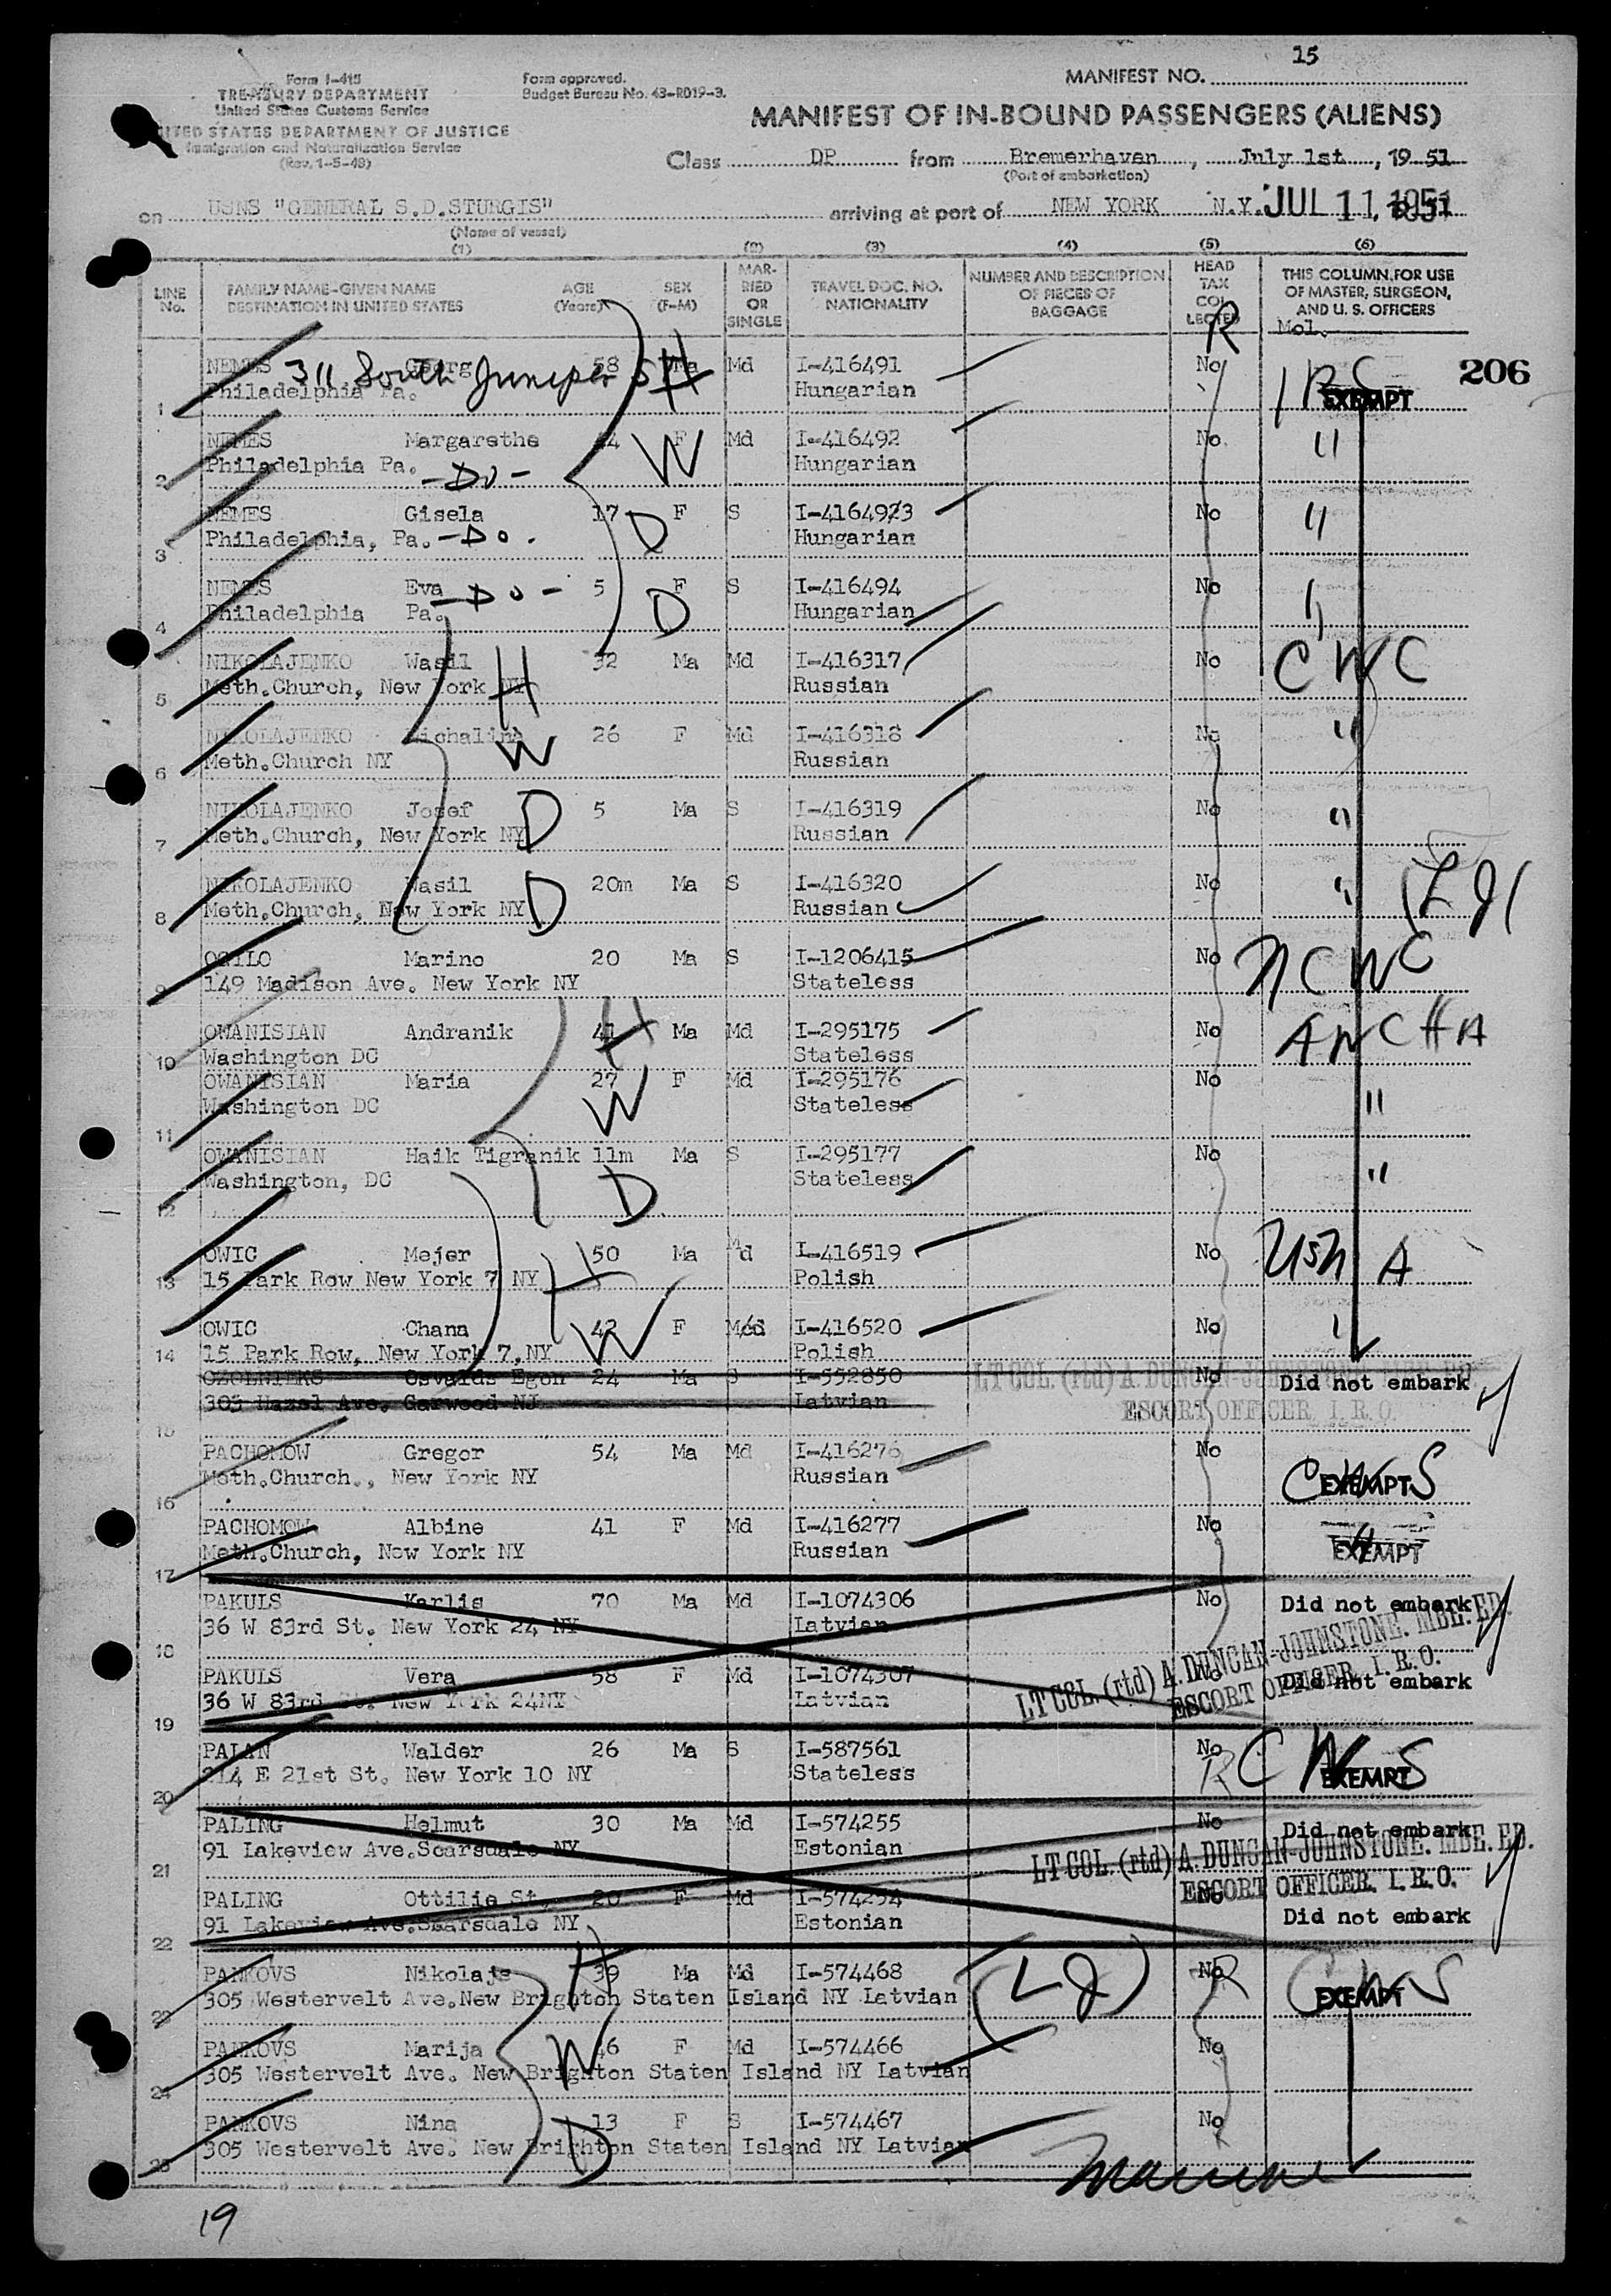 15
Form I-415
TREASURY DEPARTMENT
United States Customs Service
UNITED STATES DEPARTMENT OF JUSTICE
Immigration and Naturalization Service
(Rev. 1-5-48)
Form approved.
Budget Bureau No. 43-R019-3.
MANIFEST NO.
MANIFEST OF IN-BOUND PASSENGERS (ALIENS)
Class DP from Bremerhaven, July 1st, 19 51
(Port of embarkation)
on USNS "GENERAL S.D.STURGIS" arriving at port of NEW YORK N.Y. JUL 11 1951
(Name of vessel)
(1) (2) (3) (4) (5) (6)
LINE No. FAMILY NAME-GIVEN NAME DESTINATION IN UNITED STATES AGE (Years) SEX (F-M) MAR-RIED OR SINGLE TRAVEL DOC. NO. NATIONALITY NUMBER AND DESCRIPTION OF PIECES OF BAGGAGE HEAD TAX COL-LECTED THIS COLUMN FOR USE OF MASTER, SURGEON, AND U. S. OFFICERS
R Mol.
206
NEMES Georg 58 Ma Md I-416491 No
311 South Juniper St H
1 Philadelphia Pa. Hungarian EXEMPT
NEMES Margarethe 44 F Md I-416492 No "
2 Philadelphia Pa. -Do- W Hungarian
NEMES Gisela 17 F S I-4164923 No "
3 Philadelphia, Pa. -Do. D Hungarian
NEMES Eva 5 F S I-416494 No "
4 Philadelphia Pa. -Do- D Hungarian
NIKOLAJENKO Wasil 32 Ma Md I-416317 No CWC
5 Meth.Church, New York NY H Russian
NIKOLAJENKO Michalina 26 F Md I-416318 No "
6 Meth.Church NY W Russian
NIKOLAJENKO Josef 5 Ma S I-416319 No "
7 Meth.Church, New York NY D Russian
NIKOLAJENKO Wasil 20m Ma S I-416320 No "
8 Meth.Church, New York NY D Russian
OGILO Marino 20 Ma S I-1206415 No NCWC
9 149 Madison Ave. New York NY Stateless
OWANISIAN Andranik 41 H Ma Md I-295175 No ANCHA
10 Washington DC Stateless
OWANISIAN Maria 27 F Md I-295176 No
11 Washington DC W Stateless "
OWANISIAN Haik Tigranik 11m Ma S I-295177 No
12 Washington, DC D Stateless "
OWIC Mejer 50 Ma Md I-416519 No USNA
13 15 Park Row New York 7 NY H Polish
OWIC Chana 42 F Md I-416520 No
14 15 Park Row, New York 7,NY W Polish
OZOLNIEKS Osvalds Egon 24 Ma S I-552850 No Did not embark
LT COL. (rtd) A. DUNCAN-JOHNSTONE. MBE. ED.
15 303 Hazel Ave. Garwood NJ Latvian ESCORT OFFICER, I. R. O.
PACHOMOW Gregor 54 Ma Md I-416276 No
16 Meth.Church., New York NY Russian CWS EXEMPT
PACHOMOW Albine 41 F Md I-416277 No
17 Meth.Church, New York NY Russian EXEMPT
PAKULS Karlis 70 Ma Md I-1074306 No Did not embark
18 36 W 83rd St. New York 24 NY Latvian
PAKULS Vera 58 F Md I-1074307 No Did not embark
LT COL. (rtd) A. DUNCAN-JOHNSTONE. MBE. ED.
ESCORT OFFICER, I. R. O.
19 36 W 83rd St. New York 24NY Latvian
PALAN Walder 26 Ma S I-587561 No CWS
20 214 E 21st St. New York 10 NY Stateless R EXEMPT
PALING Helmut 30 Ma Md I-574255 No Did not embark
21 91 Lakeview Ave.Scarsdale NY Estonian
LT COL. (rtd) A. DUNCAN-JOHNSTONE. MBE. ED.
ESCORT OFFICER, I. R. O.
PALING Ottilie St, 20 F Md I-574254 No Did not embark
22 91 Lakeview Ave.Scarsdale NY Estonian
PANKOVS Nikolajs 39 H Ma Md I-574468 No R CWS
23 305 Westervelt Ave.New Brighton Staten Island NY Latvian EXEMPT
PANKOVS Marija 46 F Md I-574466 No
24 305 Westervelt Ave. New Brighton Staten Island NY Latvian W
PANKOVS Nina 13 F S I-574467 No
25 305 Westervelt Ave. New Brighton Staten Island NY Latvian D
19